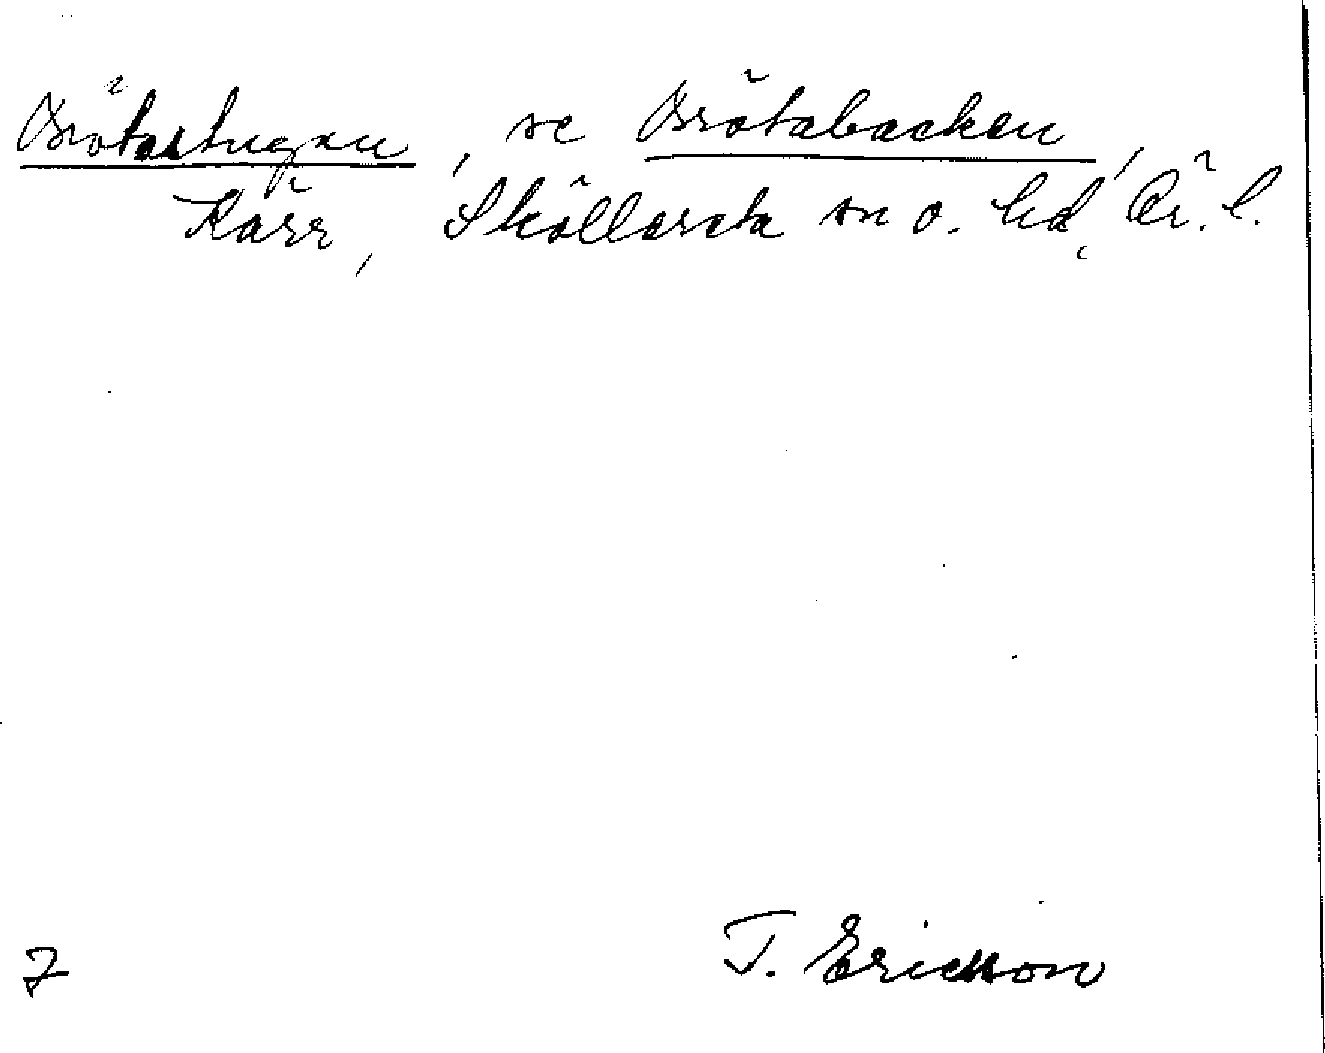 Brötastugan, se Brötabacken,
Kärr, Sköllersta sn o. hd, Ör. l.
7 T. Ericsson